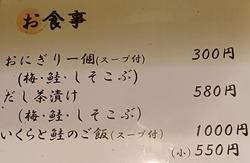 お食事
おにぎり一個(スープ付) 300円
(梅・鮭・しそこぶ)
だし茶漬け 580円
(梅・鮭・しそこぶ)
いくらと鮭のご飯(スープ付) 1000円
(小)550円